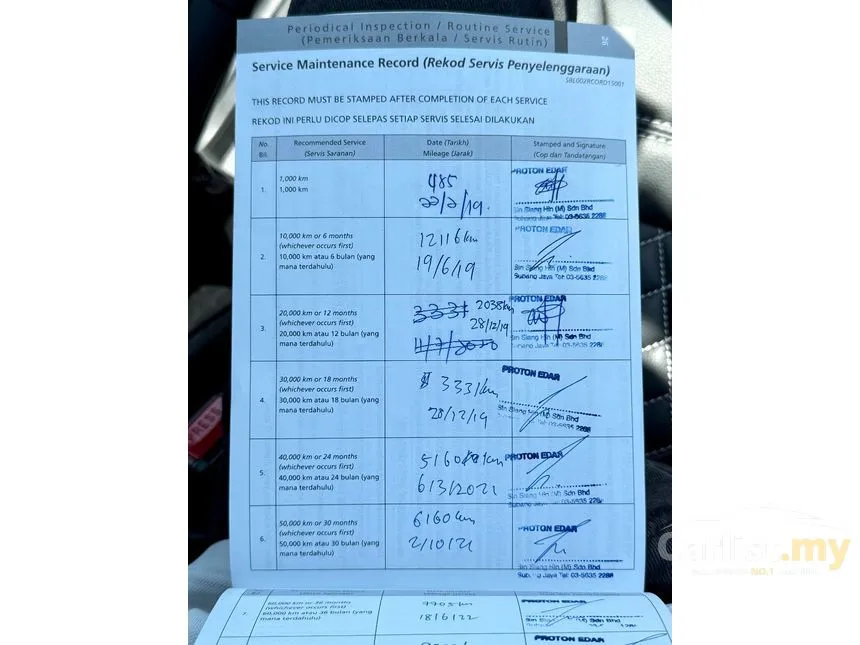 Periodical Inspection / Routine Service
(Pemeriksaan Berkala / Servis Rutin)
26
Service Maintenance Record (Rekod Servis Penyelenggaraan)
SBL002RCORD15001
THIS RECORD MUST BE STAMPED AFTER COMPLETION OF EACH SERVICE
REKOD INI PERLU DICOP SELEPAS SETIAP SERVIS SELESAI DILAKUKAN
No. Recommended Service Date (Tarikh) Stamped and Signature
Bil. (Servis Saranan) Mileage (Jarak) (Cop dan Tandatangan)
1.
1,000 km
1,000 km
485
22/2/19.
PROTON EDAR
Sin Siang Hin (M) Sdn Bhd
Subang Jaya Tel: 03-5635 2288
2.
10,000 km or 6 months
(whichever occurs first)
10,000 km atau 6 bulan (yang
mana terdahulu)
12116km
19/6/19
PROTON EDAR
Sin Siang Hin (M) Sdn Bhd
Subang Jaya Tel: 03-5635 2288
3.
20,000 km or 12 months
(whichever occurs first)
20,000 km atau 12 bulan (yang
mana terdahulu)
3331 2038km
28/12/19
4/7/2020
PROTON EDAR
Sin Siang Hin (M) Sdn Bhd
Subang Jaya Tel: 03-5635 2288
4.
30,000 km or 18 months
(whichever occurs first)
30,000 km atau 18 bulan (yang
mana terdahulu)
3331km
28/12/19
PROTON EDAR
Sin Siang Hin (M) Sdn Bhd
Tel: 03-5635 2288
5.
40,000 km or 24 months
(whichever occurs first)
40,000 km atau 24 bulan (yang
mana terdahulu)
6/3/2021
PROTON EDAR
Sin Siang Hin (M) Sdn Bhd
Subang Jaya Tel: 03-5635
6.
50,000 km or 30 months
(whichever occurs first)
50,000 km atau 30 bulan (yang
mana terdahulu)
6160km
2/10/21
PROTON EDAR
Sin Siang Hin (M) Sdn Bhd
Jaya Tel: 03-5635 2288
7.
60,000 km or 36 months
(whichever occurs first)
60,000 km atau 36 bulan (yang
mana terdahulu)
7705km
18/6/22
PROTON EDAR
(M) Sdn Bhd
PROTON EDAR
Carlist.my
NO.1